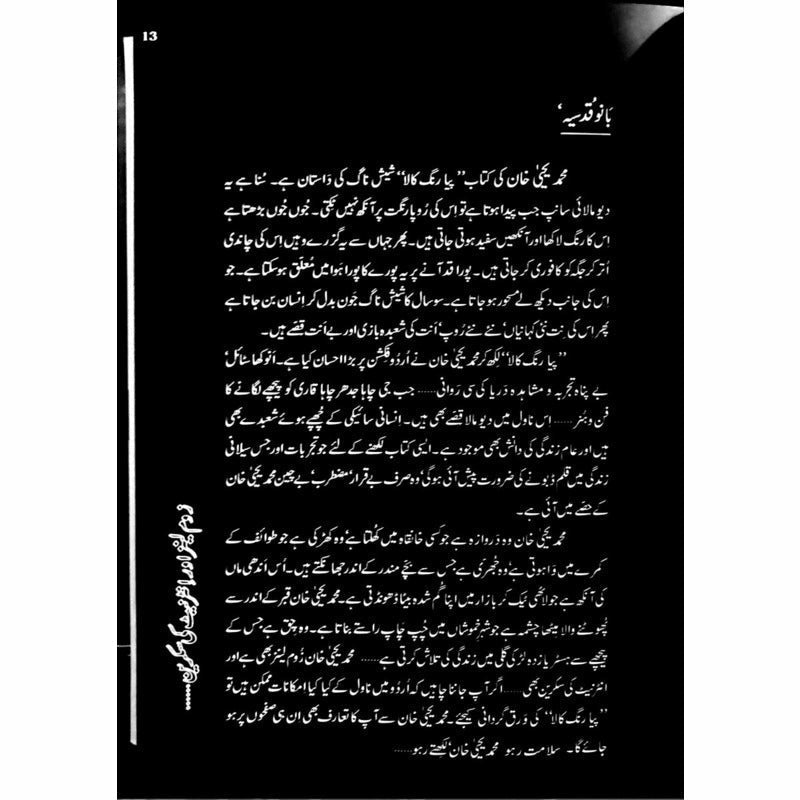 13
بانو قدسیہ،
محمد یحییٰ خان کی کتاب ’’پیا رنگ کالا‘‘ شیش ناگ کی داستان ہے۔ سُنا ہے یہ
دیومالائی سانپ جب پیدا ہوتا ہے تو اِس کی رُوپا رنگت پر آنکھ نہیں ٹکتی۔ جُوں جُوں بڑھتا ہے
اِس کا رنگ لاکھا اور آنکھیں سفید ہوتی جاتی ہیں۔ پھر جہاں سے یہ گزرے وہیں اِس کی چاندی
اُتر کر جگہ کو کافوری کر جاتی ہیں۔ پورا قد آنے پر یہ پورے کا پورا ہَوا میں مُعلّق ہوسکتا ہے۔ جو
اِس کی جانب دیکھ لے مسحور ہو جاتا ہے۔ سو سال کا شیش ناگ جَون بدل کر اِنسان بن جاتا ہے
پھر اس کی نِت نئی کہانیاں، نئے نئے رُوپ، اَنت کی شعبدہ بازی اور بے اَنت قصّے ہیں۔
’’پیا رنگ کالا‘‘ لِکھ کر محمد یحییٰ خان نے اُردو فکشن پر بڑا احسان کیا ہے۔ اَنوکھا سٹائل،
بے پناہ تجربہ و مشاہدہ دریا کی سی رَوانی...... جب جی چاہا جدھر چاہا قاری کو پیچھے لگانے کا
فن و ہُنر...... اِس ناول میں دیومالا قصّے بھی ہیں۔ اِنسانی سائیکی کے چُھپے ہوئے شعبدے بھی
ہیں اور عام زندگی کی دانش بھی موجود ہے۔ ایسی کتاب لکھنے کے لئے جو تجربات اور جس سیلانی
زندگی میں قلم ڈبونے کی ضرورت پیش آئی ہوگی، وہ صرف بے قرار، مضطرب، بے چین محمد یحییٰ خان
کے حصّے میں آئی ہے۔
محمد یحییٰ خان وہ دَروازہ ہے جو کسی خانقاہ میں کُھلتا ہے، وہ کھڑکی ہے جو طوائف کے
کمرے میں وَا ہوتی ہے، وہ جُھری ہے جس سے بچّے مندر کے اندر جھانکتے ہیں۔ اُس اَندھی ماں
کی آنکھ ہے جو لاٹھی ٹیک کر بازار میں اپنا گُم شدہ بیٹا ڈھونڈتی ہے۔ محمد یحییٰ خان قبر کے اندر سے
پُھوٹنے والا میٹھا چشمہ ہے جو شہرِ خموشاں میں چُپ چاپ راستے بناتا ہے۔ وہ چِق ہے جس کے
پیچھے سے ہسٹریا زدہ لڑکی گلی میں زندگی کی تلاش کرتی ہے...... محمد یحییٰ خان زُوم لینز بھی ہے اور
انٹرنیٹ کی سکرین بھی...... اگر آپ جاننا چاہیں کہ اُردو میں ناول کے کیا کیا امکانات ممکن ہیں تو
’’پیا رنگ کالا‘‘ کی وَرق گردانی کیجئے۔ محمد یحییٰ خان سے آپ کا تعارف بھی ان ہی صفحوں پر ہو
جائے گا۔ سلامت رہو محمد یحییٰ خان، لِکھتے رہو......
زُوم لینز اور انٹرنیٹ کی سکرین......